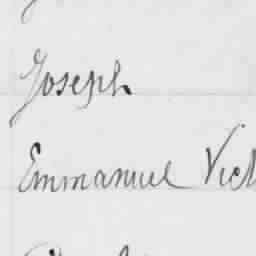 Joseph
Emmanuel Vict